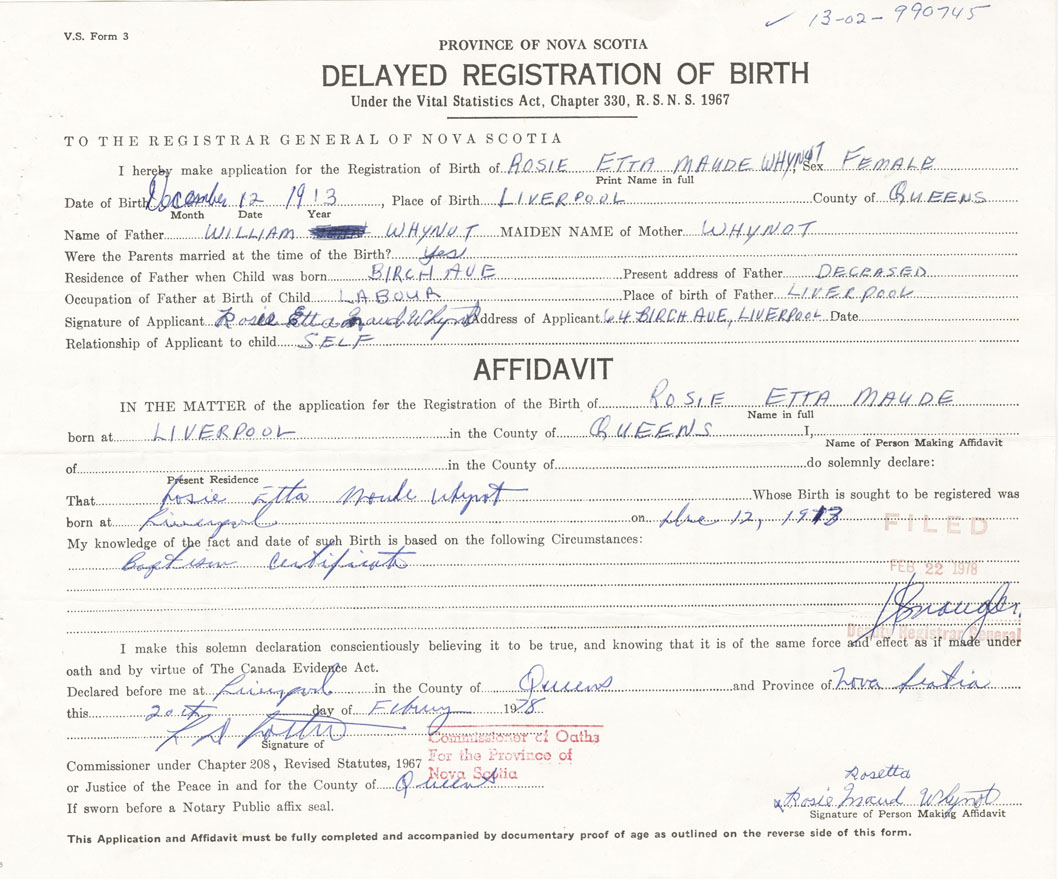 13-02-990745
V.S. Form 3
PROVINCE OF NOVA SCOTIA
DELAYED REGISTRATION OF BIRTH
Under the Vital Statistics Act, Chapter 330, R. S. N. S. 1967
TO THE REGISTRAR GENERAL OF NOVA SCOTIA
I hereby make application for the Registration of Birth of ROSIE ETTA MAUDE WHYNOT, Sex FEMALE
Print Name in full
Date of Birth December 12 1913, Place of Birth LIVERPOOL County of QUEENS
Month Date Year
Name of Father WILLIAM WHYNOT MAIDEN NAME of Mother WHYNOT
Were the Parents married at the time of the Birth? Yes
Residence of Father when Child was born BIRCH AVE Present address of Father DECEASED
Occupation of Father at Birth of Child LABOUR Place of birth of Father LIVERPOOL
Signature of Applicant Rosie Etta Maud Whynot Address of Applicant 64 BIRCH AVE, LIVERPOOL Date
Relationship of Applicant to child SELF
AFFIDAVIT
IN THE MATTER of the application for the Registration of the Birth of ROSIE ETTA MAUDE
Name in full
born at LIVERPOOL in the County of QUEENS I,
Name of Person Making Affidavit
of in the County of do solemnly declare:
Present Residence
That Rosie Etta Maude Whynot Whose Birth is sought to be registered was
born at Liverpool on Dec 12, 1913
FILED
My knowledge of the fact and date of such Birth is based on the following Circumstances:
Baptism Certificate
FEB 22 1978
Deputy Registrar General
I make this solemn declaration conscientiously believing it to be true, and knowing that it is of the same force and effect as if made under
oath and by virtue of The Canada Evidence Act.
Declared before me at Liverpool in the County of Queens and Province of Nova Scotia
this 20th day of Febuary 1978
Signature of
Commissioner of Oaths
For the Province of
Nova Scotia
Commissioner under Chapter 208, Revised Statutes, 1967
or Justice of the Peace in and for the County of Queens
If sworn before a Notary Public affix seal.
Rosetta
x Rosie Maud Whynot
Signature of Person Making Affidavit
This Application and Affidavit must be fully completed and accompanied by documentary proof of age as outlined on the reverse side of this form.